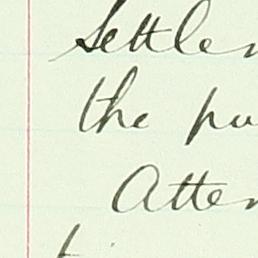 Settlem
the pu
Atten